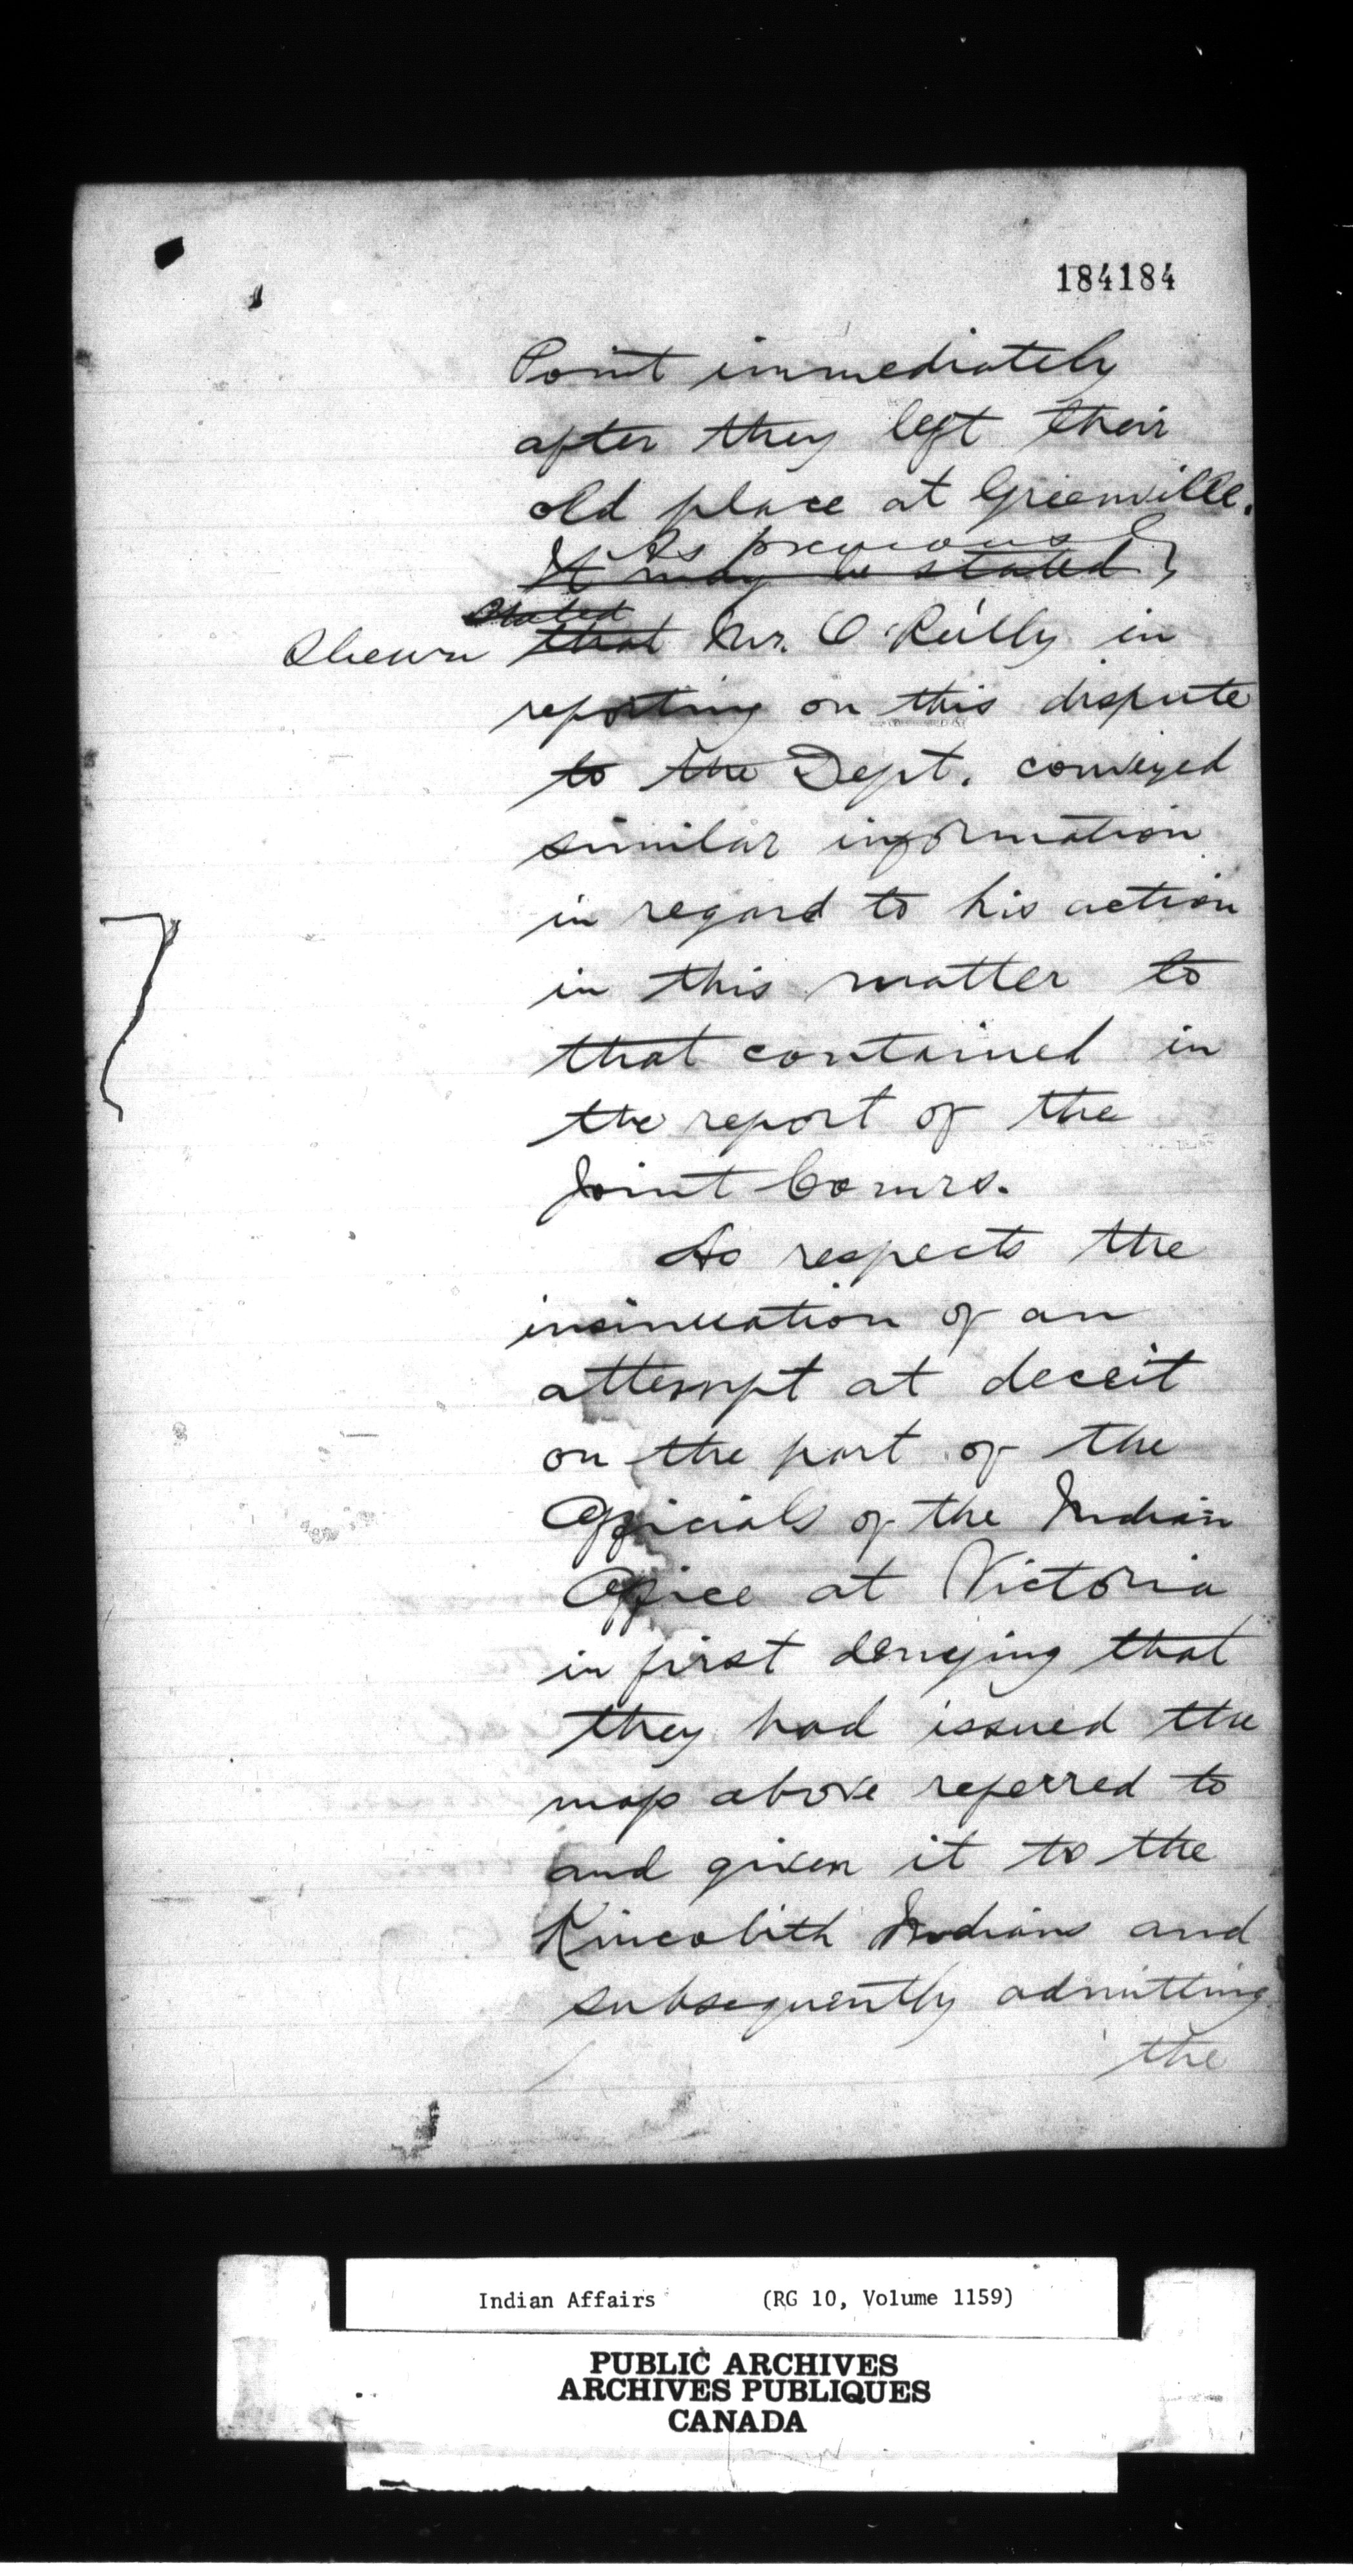 184184
Point immediately
after they left their
old place at Greenville.
As previously
It may be stated
stated
Shewn that Mr. O'Reilly in
reporting on this dispute
to the Dept. conveyed
similar information
in regard to his action
in this matter to
that contained in
the report of the
Joint Comrs.
As respects the
insinuation of an
attempt at deceit
on the part of the
Officials of the Indian
Office at Victoria
in first denying that
they had issued the
map above referred to
and given it to the
Kincolith Indians and
subsequently admitting
the
Indian Affairs (RG 10, Volume 1159)
PUBLIC ARCHIVES
ARCHIVES PUBLIQUES
CANADA